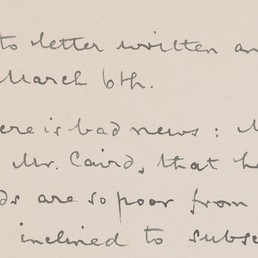 to letter written an
March 6th.
ere is bad news : M
Mr. Caird, that h
ds are so poor from
inclined to subsc